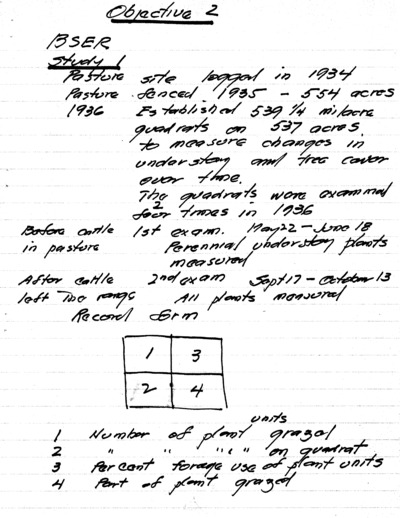 Objective 2
BSER
Study 1
Pasture site logged in 1934
Pasture fenced 1935 - 554 acres
1936 Established 539 1/4 milacre
quadrats on 537 acres
to measure changes in
understory and tree cover
over time.
The quadrats were examined
2
times in 1936
Before cattle 1st exam. May 22 - June 18
in pasture Perennial understory plants
measured
After cattle 2nd exam Sept 17 - October 13
left the range All plants measured
Record form
1 3
2 4
units
1 Number of plant grazed
2 " " " " on quadrat
3 Percent forage use of plant units
4 Part of plant grazed